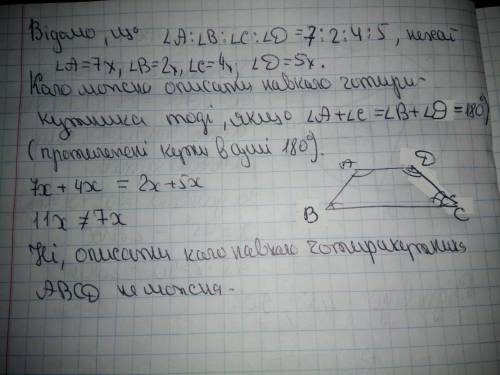 Відомо, що ∠A:∠B:∠C:∠D=7:2:4:5, нехай
∠A=7x, ∠B=2x, ∠C=4x, ∠D=5x.
Коло можна описати навколо чотири-
кутника тоді, якщо ∠A+∠C=∠B+∠D=180°
(протилежні кути в сумі 180°).
7x+4x = 2x+5x
11x ≠ 7x
Ні, описати коло навколо чотирикутника
ABCD не можна.
A
D
B
C